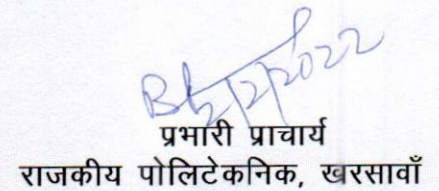 2/2/2022
प्रभारी प्राचार्य
राजकीय पोलिटेकनिक, खरसावाँ